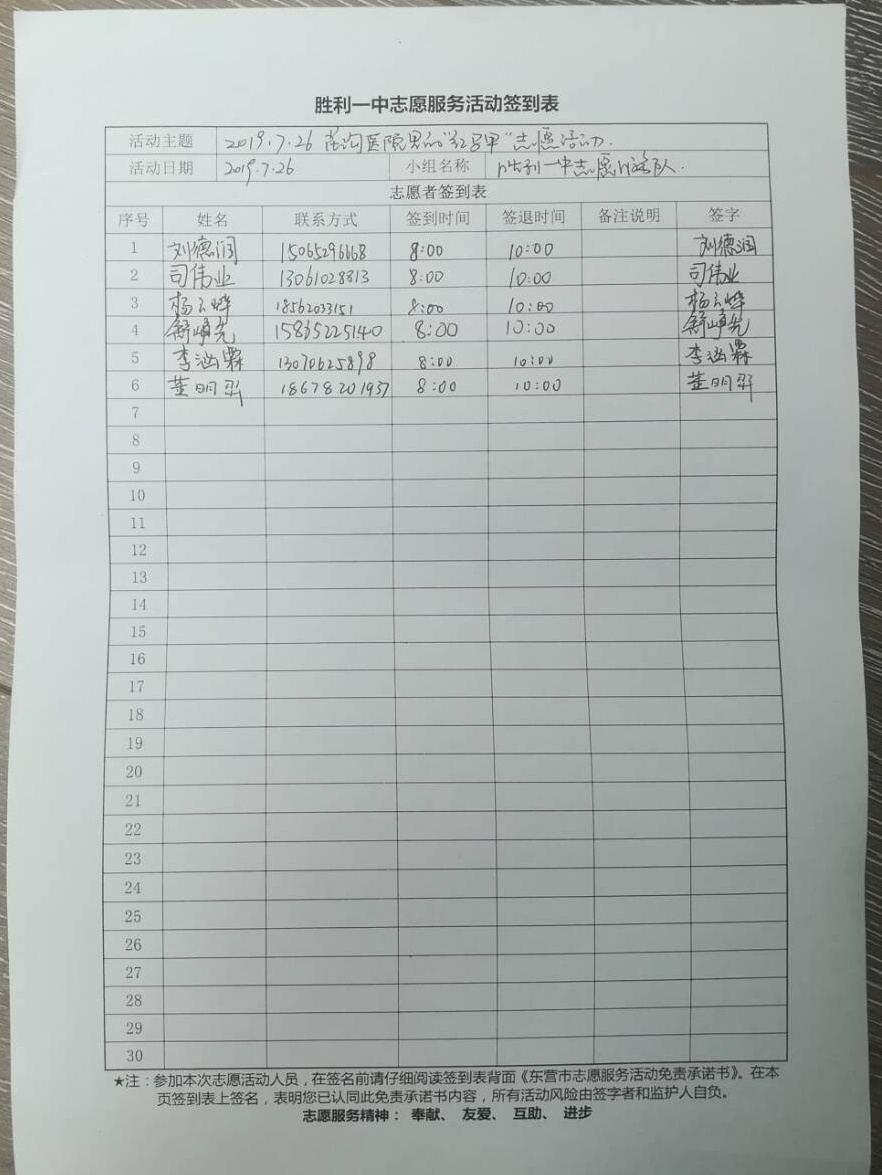 胜利一中志愿服务活动签到表
活动主题 2019.7.26 医院 "红马甲"志愿活动.
活动日期 2019.7.26 小组名称 胜利一中志愿服务队.
志愿者签到表
序号 姓名 联系方式 签到时间 签退时间 备注说明 签字
1 刘德润 15065296668 8:00 10:00 刘德润
2 司伟业 13061028813 8:00 10:00 司伟业
3 杨云烨 18562033151 8:00 10:00 杨云烨
4 舒峥先 15835225140 8:00 10:00 舒峥先
5 李涵霖 13070625898 8:00 10:00 李涵霖
6 董明 18678201957 8:00 10:00 董明
7
8
9
10
11
12
13
14
15
16
17
18
19
20
21
22
23
24
25
26
27
28
29
30
★注：参加本次志愿活动人员，在签名前请仔细阅读签到表背面《东营市志愿服务活动免责承诺书》。在本
页签到表上签名，表明您已认同此免责承诺书内容，所有活动风险由签字者和监护人自负。
志愿服务精神： 奉献、 友爱、 互助、 进步